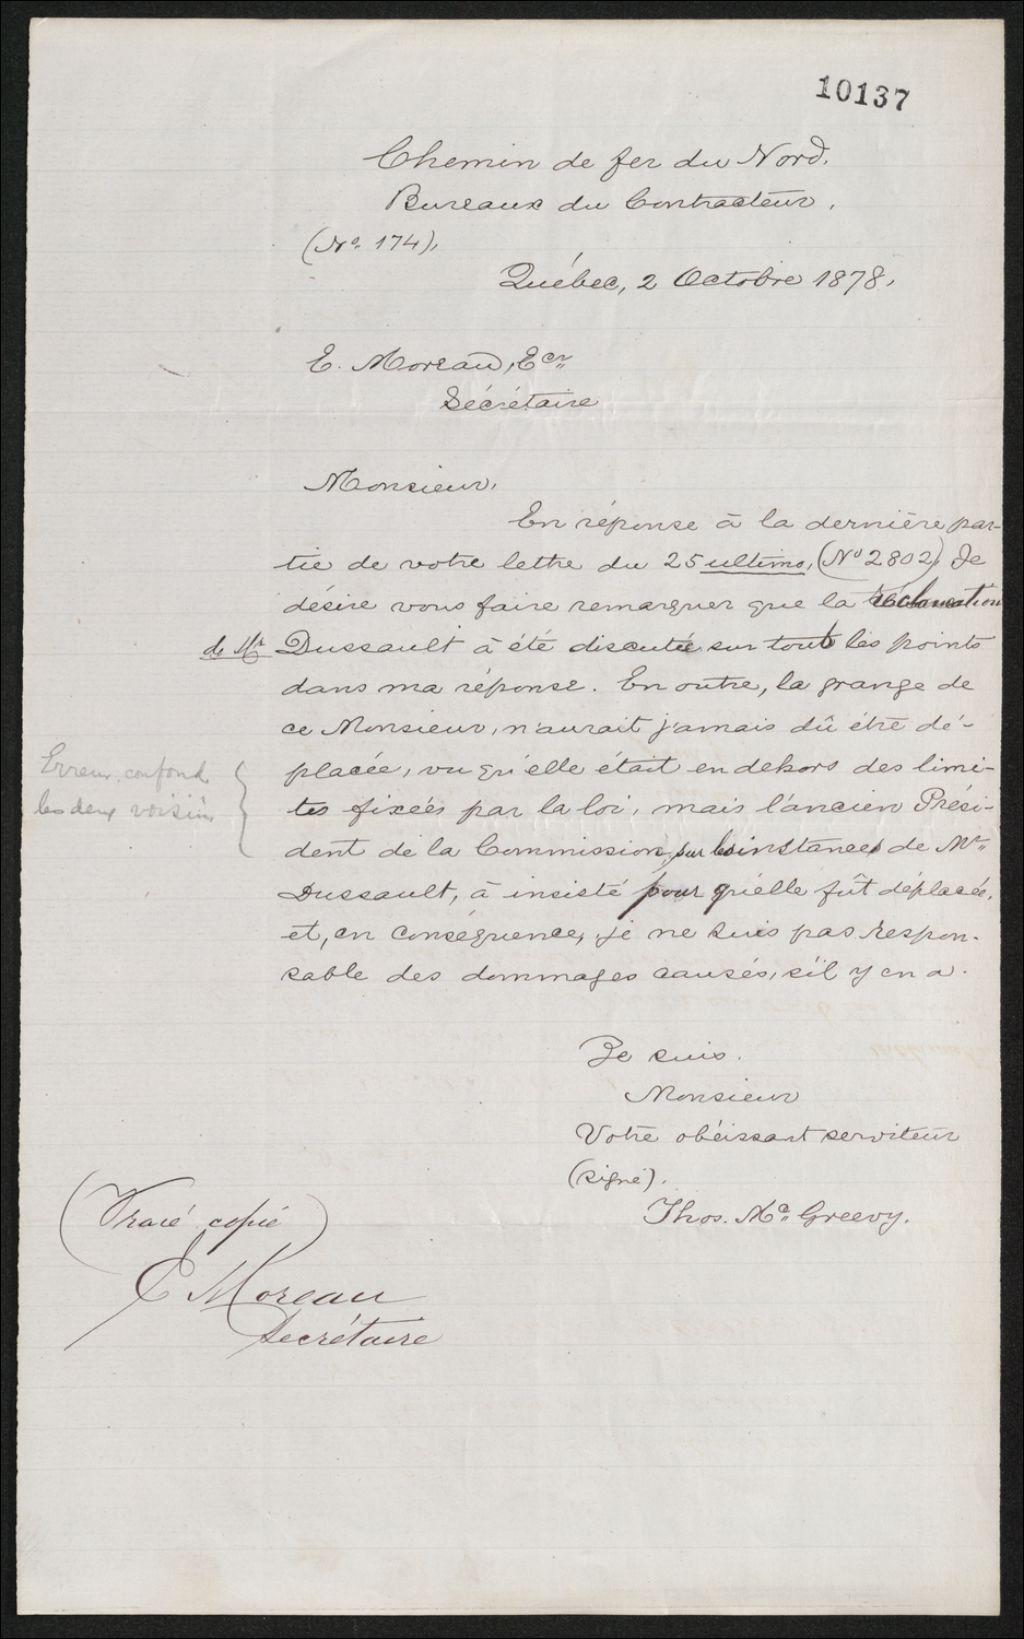 10137
Chemin de fer du Nord.
Bureaux du Contracteur.
(No. 174),
Québec, 2 Octobre 1878.
E. Moreau, Ecr
Sécrétaire
Monsieur,
En réponse à la dernière par-
tie de votre lettre du 25 ultimo, (No 2802) Je
désire vous faire remarquer que la réclamation
de Mr Dussault à été discutée sur tout les points
dans ma réponse. En outre, la grange de
ce Monsieur, n'aurait jamais dû être dé-
placée, vu qu'elle était en dehors des limi-
tes fixées par la loi, mais l'ancien Prési-
dent de la Commission, sur les instances de Mr
Dussault, à insisté pour qu'elle fût déplacée,
et, en conséquence, je ne suis pas respon-
sable des dommages causés, s'il y en a.
Erreur, confond
les deux voisins
Je suis.
Monsieur
Votre obéissant serviteur
(signé).
Thos. Mc Greevy.
(Vraie copie)
E Moreau
Secrétaire